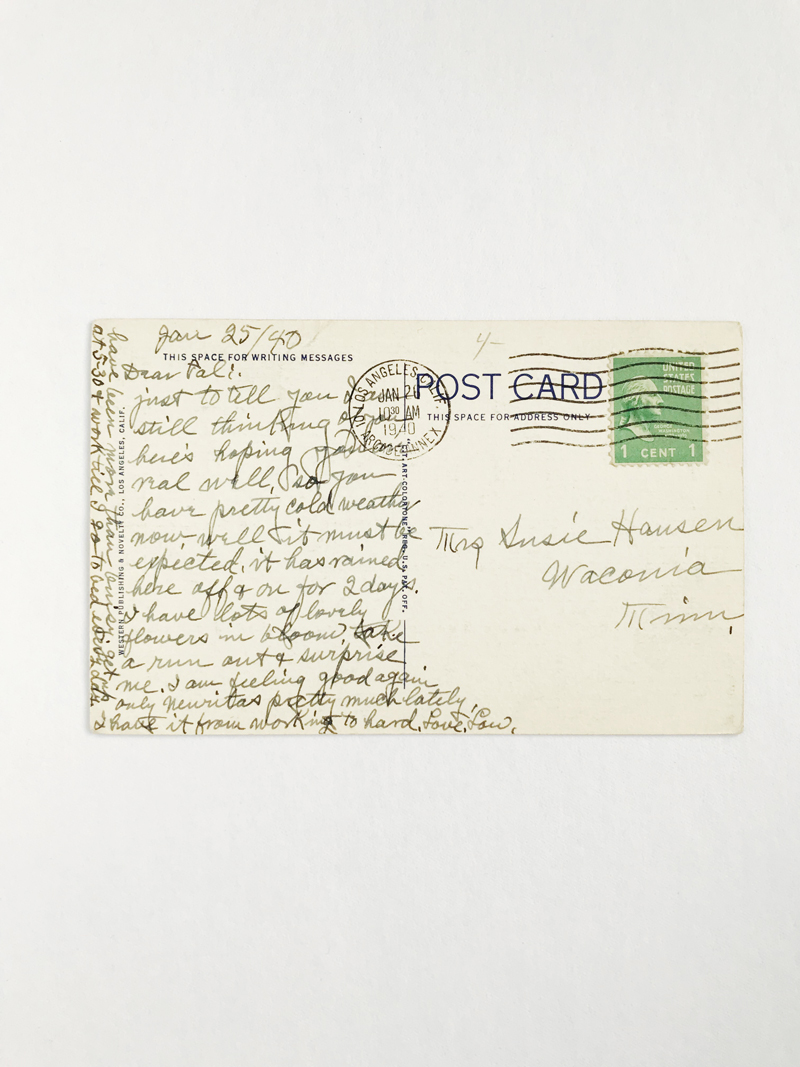 Jan 25/40
THIS SPACE FOR WRITING MESSAGES
Dear Pal:
just to tell you I am
still thinking of you
here's hoping you are
real well, so you
have pretty cold weather
now, well it must be
expected, it has rained
here off & on for 2 days.
I have lots of lovely
flowers in bloom, take
a run out & surprise
me. I am feeling good again
only Neuritas pretty much lately,
I have it from working to hard. Love, Lou.
have been worn than angry get up
at 5-30 & work till I go to bed
WESTERN PUBLISHING & NOVELTY CO., LOS ANGELES, CALIF.
LOS ANGELES, CALIF.
JAN 26
10 30 AM
1940
ARCADE ANNEX
4-
POST CARD
THIS SPACE FOR ADDRESS ONLY
C.T. ART-COLORTONE REG. U.S. PAT. OFF.
UNITED
STATES
POSTAGE
GEORGE
WASHINGTON
1 CENT 1
Mrs Susie Hansen
Waconia
Minn.